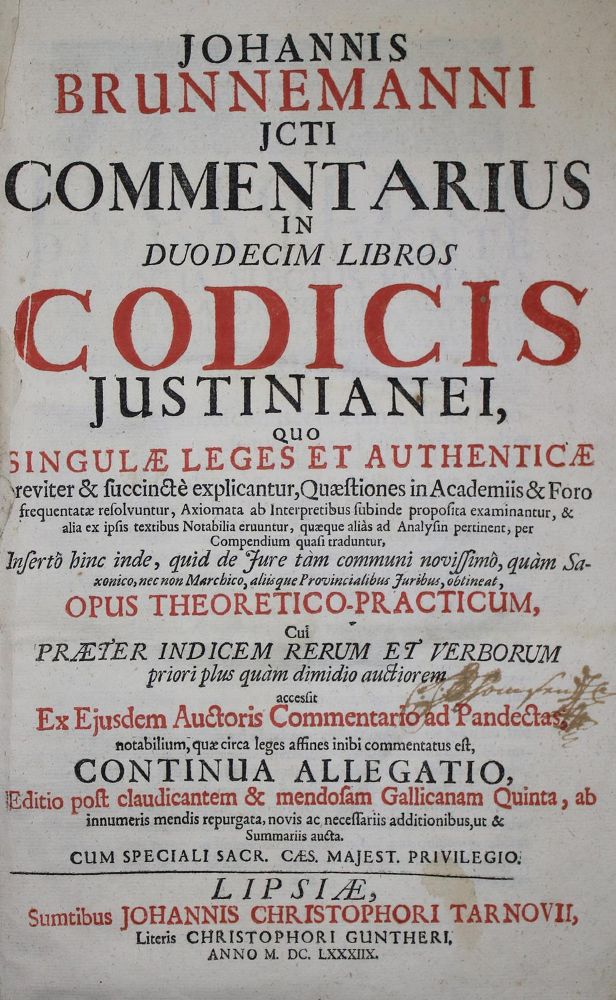 JOHANNIS
BRUNNEMANNI
JCTI
COMMENTARIUS
IN
DUODECIM LIBROS
CODICIS
JUSTINIANEI,
QUO
SINGULÆ LEGES ET AUTHENTICÆ
breviter & succinctè explicantur, Quæstiones in Academiis & Foro
frequentatæ resolvuntur, Axiomata ab Interpretibus subinde proposita examinantur, &
alia ex ipsis textibus Notabilia eruuntur, quæque aliàs ad Analysin pertinent, per
Compendium quasi traduntur,
Insertô hinc inde, quid de Jure tàm communi novissimô, quàm Sa-
xonico, nec non Marchico, aliisque Provincialibus Juribus, obtineat,
OPUS THEORETICO-PRACTICUM,
Cui
PRÆTER INDICEM RERUM ET VERBORUM
priori plus quàm dimidio auctiorem
accessit
Ex Ejusdem Auctoris Commentario ad Pandectas,
notabilium, quæ circa leges affines inibi commentatus est,
CONTINUA ALLEGATIO,
Editio post claudicantem & mendosam Gallicanam Quinta, ab
innumeris mendis repurgata, novis ac necessariis additionibus, ut &
Summariis aucta.
CUM SPECIALI SACR. CÆS. MAJEST. PRIVILEGIO.
LIPSIÆ,
Sumtibus JOHANNIS CHRISTOPHORI TARNOVII,
Literis CHRISTOPHORI GUNTHERI,
ANNO M. DC. LXXXIIX.